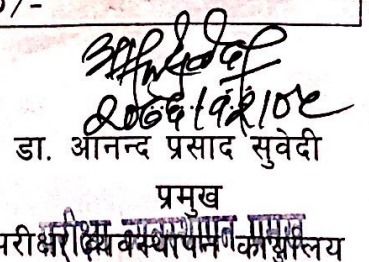 /-
२०७६।१२।०८
डा. आनन्द प्रसाद सुवेदी
प्रमुख
परीक्षा व्यवस्थापन कार्यालय